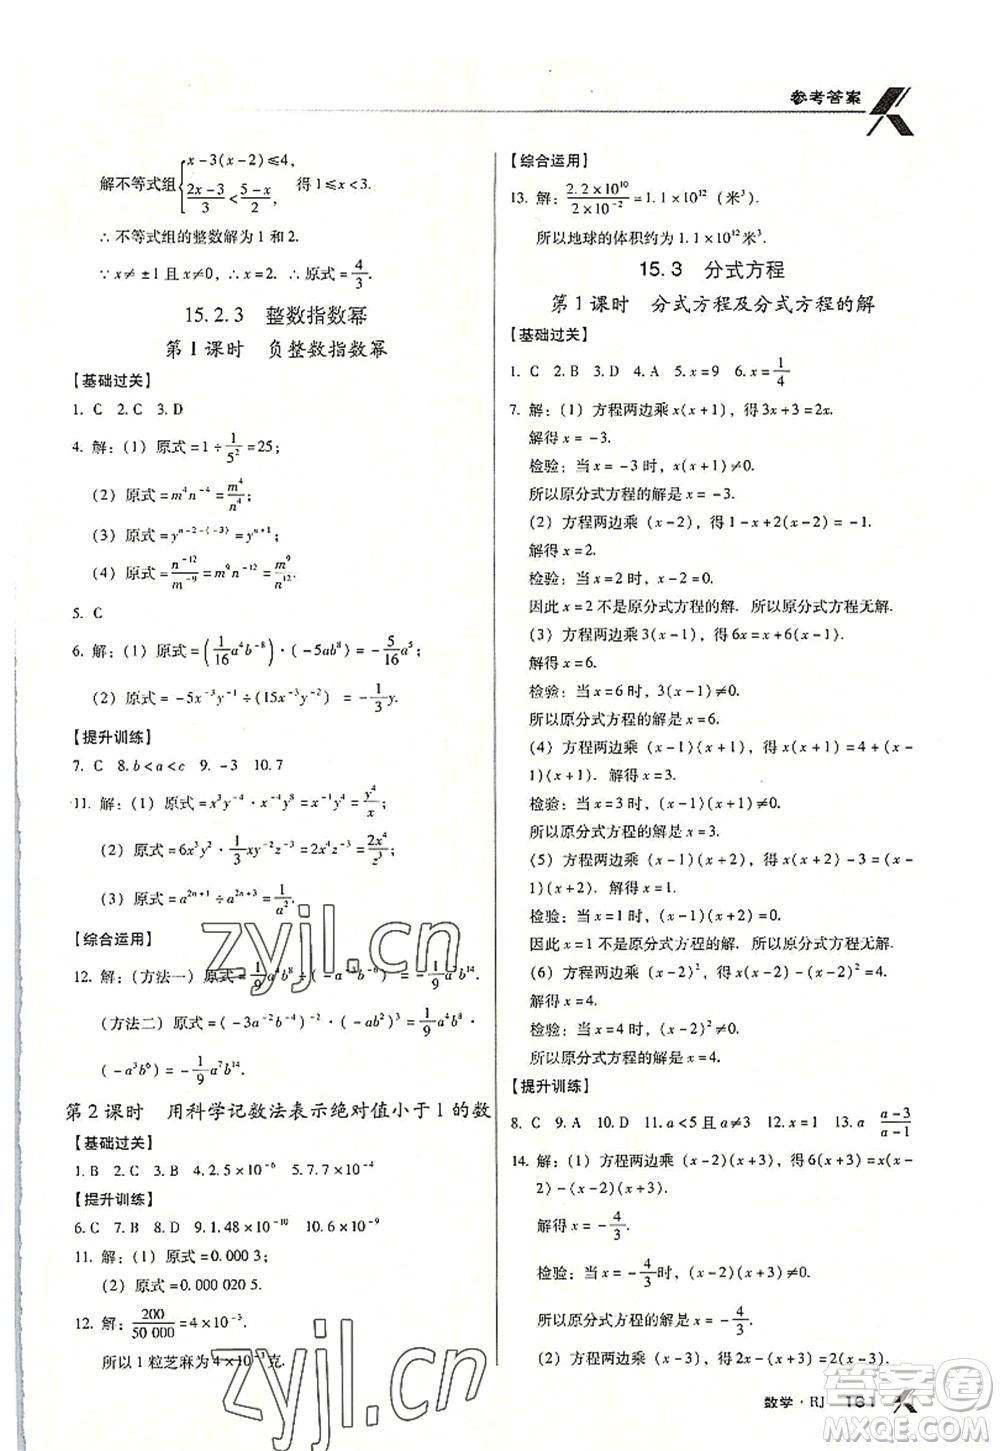 参考答案
解不等式组{x-3(x-2)≤4, (2x-3)/3<(x-3)/2, 得 1≤x<3.
∴不等式组的整数解为 1 和 2.
∵x≠±1 且 x≠0, ∴x=2, ∴原式=4/3.
15.2.3 整数指数幂
第1课时 负整数指数幂
【基础过关】
1. C 2. C 3. D
4. 解：(1) 原式=1÷1/5²=25；
(2) 原式=m⁴n⁻⁴=m⁴/n⁴；
(3) 原式=yⁿ⁻²⁻⁽⁻³⁾=yⁿ⁺¹；
(4) 原式=n⁻¹²/m⁻⁹=m⁹n⁻¹²=m⁹/n¹².
5. C
6. 解：(1) 原式=(1/16 a⁴b⁻⁸)·(-5ab⁸)=-5/16 a⁵；
(2) 原式=-5x⁻³y⁻¹÷(15x⁻³y⁻²)=-1/3 y.
【提升训练】
7. C 8. b<a<c 9. -3 10. 7
11. 解：(1) 原式=x³y⁻⁴·x⁻⁴y⁸=x⁻¹y⁴=y⁴/x；
(2) 原式=6x³y²·1/3 xy⁻²z⁻³=2x⁴z⁻³=2x⁴/z³；
(3) 原式=a²ⁿ⁺¹÷a²ⁿ⁺³=a⁻²=1/a².
【综合运用】
12. 解：(方法一) 原式=1/9 a⁴b⁸÷(-a⁻³b⁻⁶)=-1/9 a⁷b¹⁴.
(方法二) 原式=(-3a⁻²b⁻⁴)⁻²·(-ab²)³=1/9 a⁴b⁸·
(-a³b⁶)=-1/9 a⁷b¹⁴.
第2课时 用科学记数法表示绝对值小于1的数
【基础过关】
1. B 2. C 3. C 4. 2.5×10⁻⁶ 5. 7.7×10⁻⁵
【提升训练】
6. C 7. B 8. D 9. 1.48×10⁻¹⁰ 10. 6×10⁻⁹
11. 解：(1) 原式=0.000 3；
(2) 原式=0.000 020 5.
12. 解：200/50 000=4×10⁻³.
所以1粒芝麻为4×10⁻³克.
【综合运用】
13. 解：2.2×10¹⁰/2×10⁻²=1.1×10¹² (米³).
所以地球的体积约为1.1×10¹²米³.
15.3 分式方程
第1课时 分式方程及分式方程的解
【基础过关】
1. C 2. B 3. D 4. A 5. x=9 6. x=1/4
7. 解：(1) 方程两边乘x(x+1)，得3x+3=2x.
解得x=-3.
检验：当x=-3时，x(x+1)≠0.
所以原分式方程的解是x=-3.
(2) 方程两边乘(x-2)，得1-x+2(x-2)=-1.
解得x=2.
检验：当x=2时，x-2=0.
因此x=2不是原分式方程的解. 所以原分式方程无解.
(3) 方程两边乘3(x-1)，得6x=x+6(x-1).
解得x=6.
检验：当x=6时，3(x-1)≠0.
所以原分式方程的解是x=6.
(4) 方程两边乘(x-1)(x+1)，得x(x+1)=4+(x-
1)(x+1). 解得x=3.
检验：当x=3时，(x-1)(x+1)≠0.
所以原分式方程的解是x=3.
(5) 方程两边乘(x-1)(x+2)，得x(x+2)-3=(x-
1)(x+2). 解得x=1.
检验：当x=1时，(x-1)(x+2)=0.
因此x=1不是原分式方程的解. 所以原分式方程无解.
(6) 方程两边乘(x-2)²，得x(x-2)-(x-2)²=4.
解得x=4.
检验：当x=4时，(x-2)²≠0.
所以原分式方程的解是x=4.
【提升训练】
8. C 9. A 10. D 11. a<5且a≠3 12. x=1 13. a (a-3)/(a-1)
14. 解：(1) 方程两边乘(x-2)(x+3)，得6(x+3)=x(x-
2)-(x-2)(x+3).
解得x=-4/3.
检验：当x=-4/3时，(x-2)(x+3)≠0.
所以原分式方程的解是x=-4/3.
(2) 方程两边乘(x-3)，得2x-(x+3)=2(x-3).
数学·RJ 161
zyjl.cn
zyjl.cn
答案卷